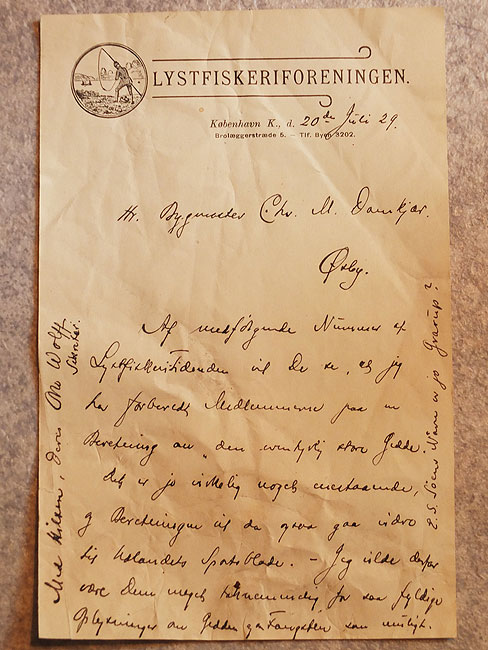 LYSTFISKERIFORENINGEN.
København K., d. 20de Juli 29.
Brolæggerstræde 5. — Tlf. Byen 3202.
Hr. Bygmester Chr. M. Damkjær.
Øsby.
Af medfølgende Nummer af
Lystfiskeritidenden vil De se, at jeg
har forberedt Medlemmerne paa en
Beretning om "den umtyvlig store Gedde.
Det er jo virkelig noget enestaaende,
og Beretningen vil da ogsaa gaa videre
til Udlandets Sportsblade. - Jeg vilde derfor
være Dem meget taknemmelig for saa fyldige
Oplysninger om Gedden og Fangsten som muligt.
Med Hilsen, Deres Ove Wolff
Sekretær.
P.S. Søens Navn er jo Grarup?